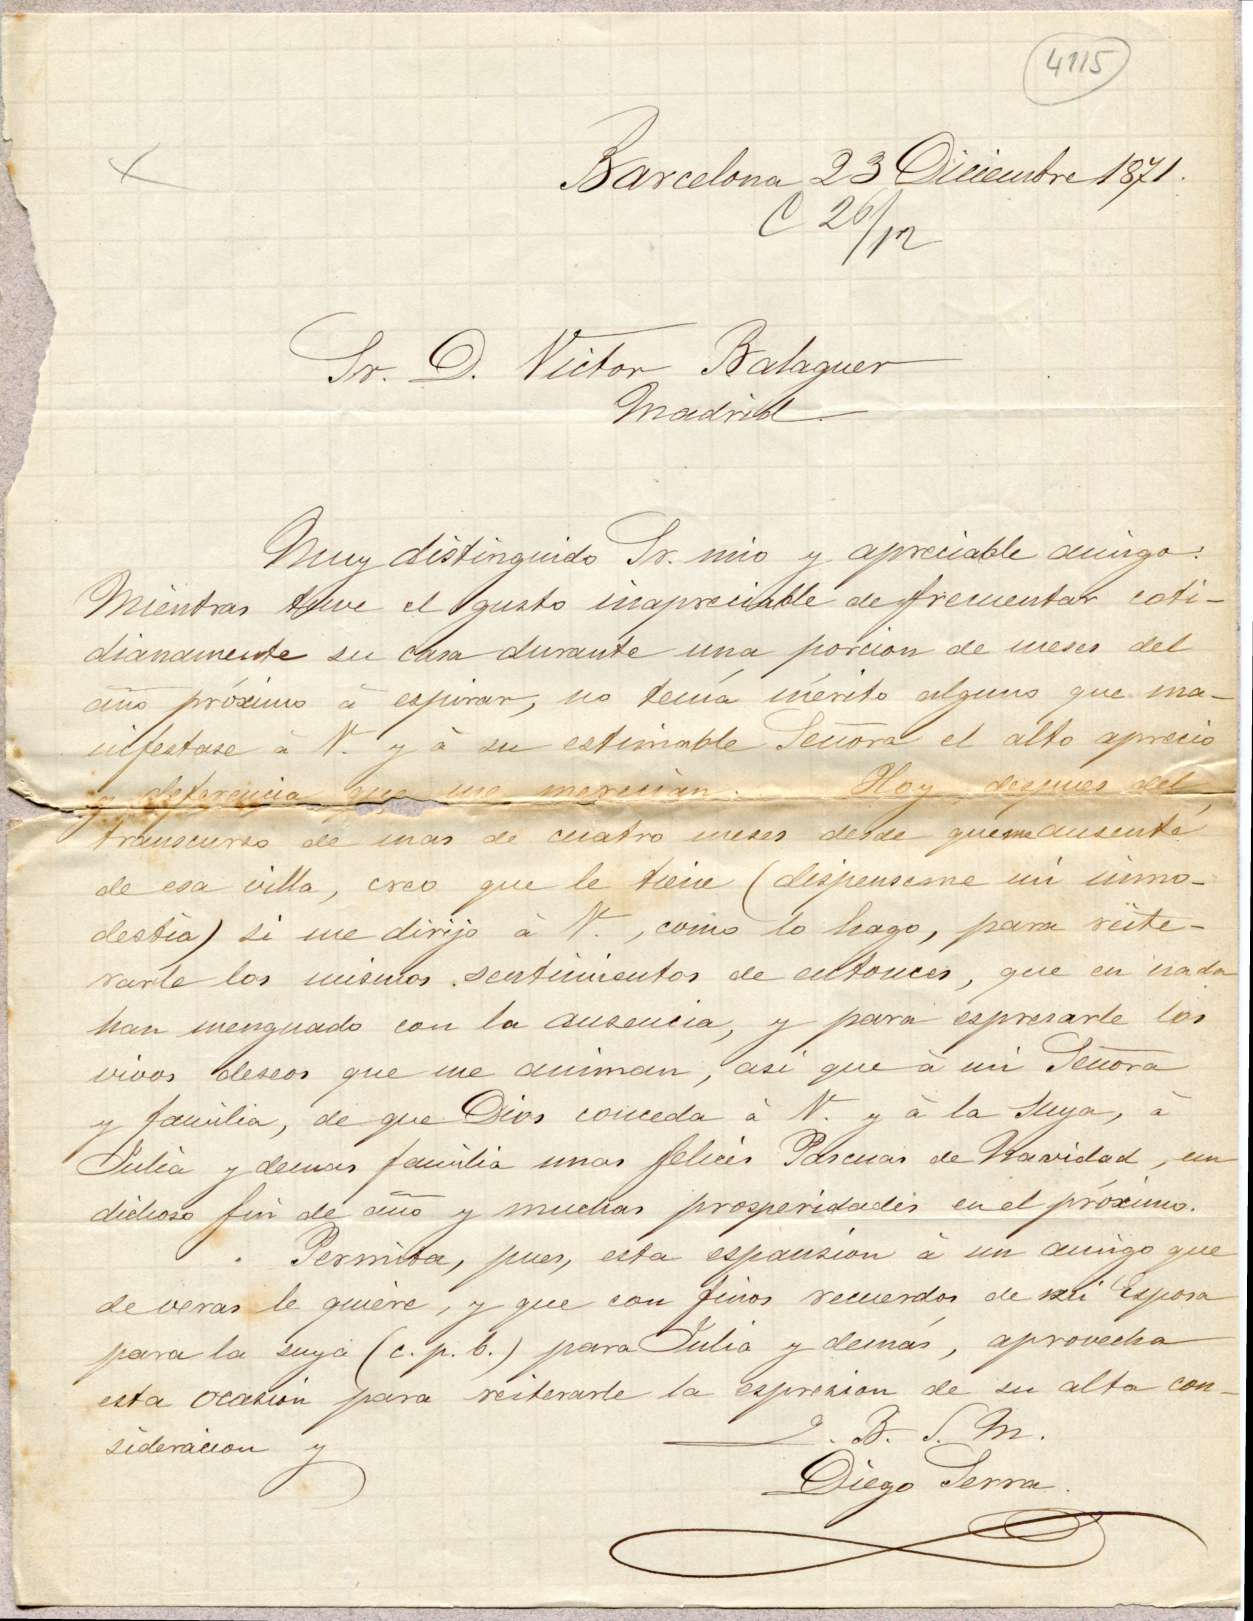 4115
Barcelona 23 Diciembre 1871.
C 26/12
Sr. D. Victor Balaguer
Madrid
Muy distinguido Sr. mio y apreciable amigo:
Mientras tuve el gusto inapreciable de frecuentar coti-
dianamente su casa durante una porcion de meses del
año próximo à espirar, no tenia mérito alguno que ma-
nifestase à V. y à su estimable Señora el alto aprecio
y deferencia que me merecian. Hoy, despues del
transcurso de mas de cuatro meses desde que me ausenté
de esa villa, creo que le tiene (dispenseme mi inmo-
destia) si me dirijo à V., como lo hago, para reite-
rarle los mismos sentimientos de entonces, que en nada
han menguado con la ausencia, y para espresarle los
vivos deseos que me animan, asi que à mi Señora
y familia, de que Dios conceda à V. y à la suya, à
Julia y demas familia unas felices Pascuas de Navidad, un
dichoso fin de año y muchas prosperidades en el próximo.
Permita, pues, esta espansion à un amigo que
de veras le quiere, y que con finos recuerdos de mi Esposa
para la suya (c. p. b.) para Julia y demás, aprovecha
esta ocasion para reiterarle la espresion de su alta con-
sideracion y
Q. B. S. M.
Diego Serra.